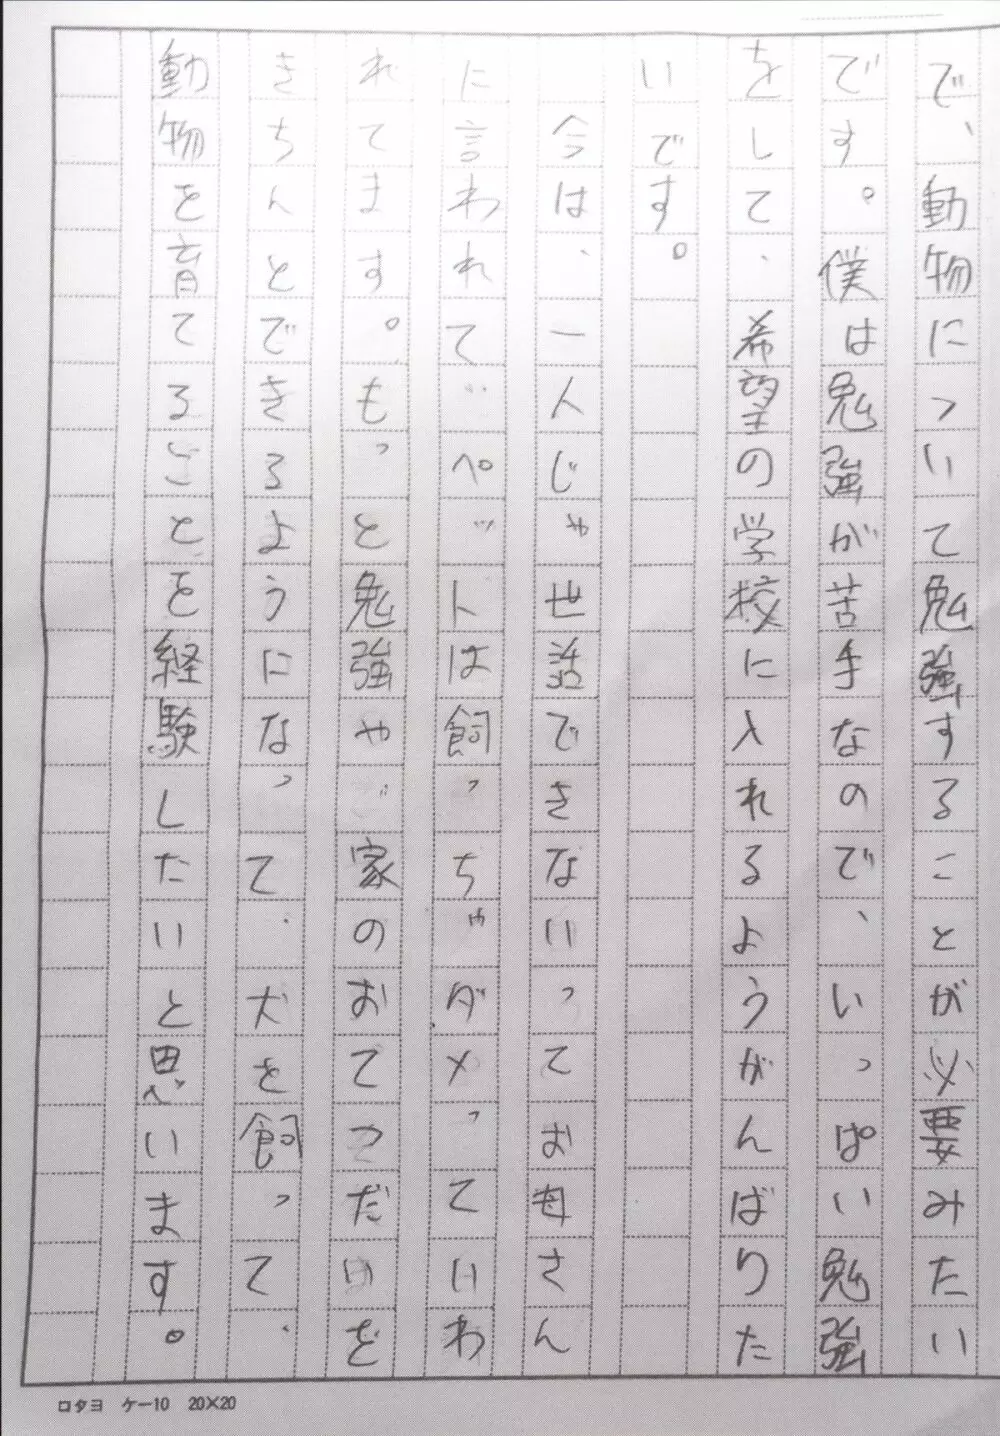 で、動物について勉強することが必要みたい
です。僕は勉強が苦手なので、いっぱい勉強
をして、希望の学校に入れるようがんばりた
いです。
今は、一人じゃ世話できないってお母さん
に言われて〝ペットは飼っちゃダメ〟っていわ
れてます。もっと勉強や家のおてつだいを
きちんとできるようになって、犬を飼って、
動物を育てることを経験したいと思います。
ロタヨ ケー10 20×20